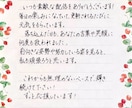 いつも素敵な配信をありがとうございます!
毎日の楽しみになっていて、更新されるたびに
元気をもらっています。
落ち込んだ時も、あなたの言葉や笑顔に
何度も救われました。
前向きな姿勢や努力している姿を見ると、
私も頑張ろうと思えます。
これからも無理のないペースで輝き
続けてください!
ずっと応援しています!